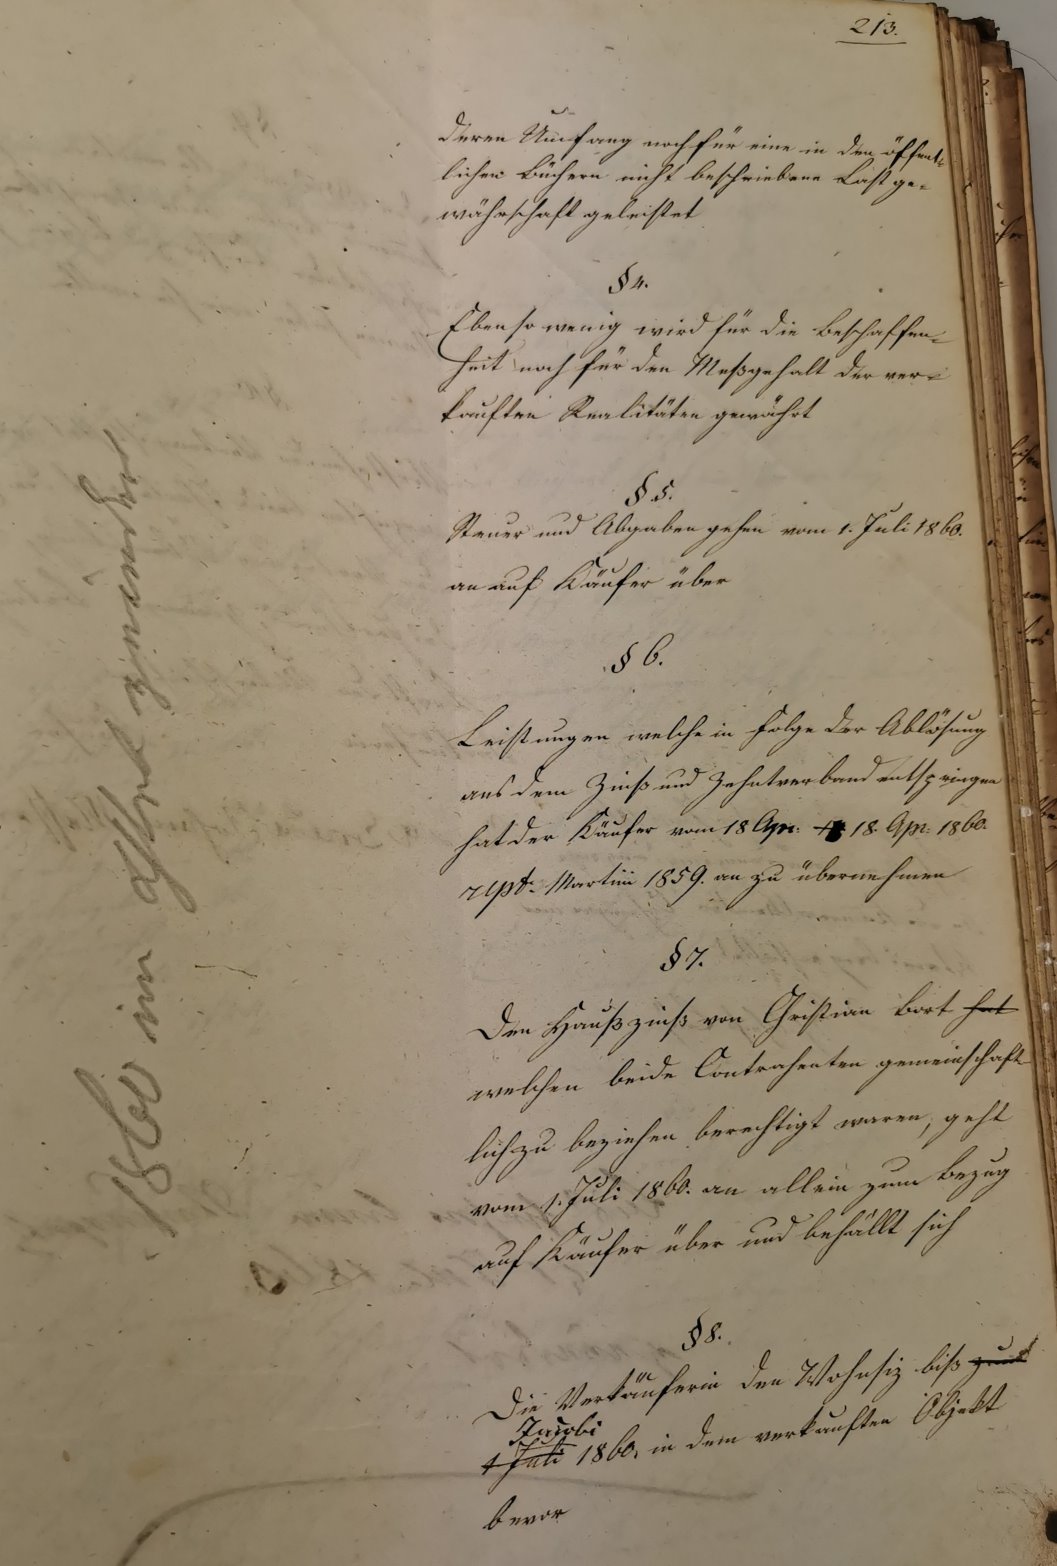 213.
deren Umfang noch für eine in den öffent-
lichen Büchern nicht beschriebene Last ge-
währschaft geleistet
§ 4.
Ebenso wenig wird für die Beschaffen-
heit noch für den Meßgehalt der ver-
kauften Realitäten gewährt
§ 5.
Steuer und Abgaben gehen vom 1. Juli 1860.
an auf Käufer über
§ 6.
Leistungen welche in Folge der Ablösung
aus dem Zinß und Zehntverband entspringen
hat der Käufer vom 18 Apr. 18. Apr. 1860.
resp. Martini 1859. an zu übernehmen
§ 7.
Den Haußzinß von Christian Bort hat
welchen beide Contrahenten gemeinschaft-
lich zu beziehen berechtigt waren, geht
vom 1. Juli 1860. an allein zum Bezug
auf Käufer über und behällt sich
§ 8.
Die Verkäuferin den Wohnsiz biß zum
Jacobi
1 Juli 1860. in dem verkauften Objekt
bevor
1860 im